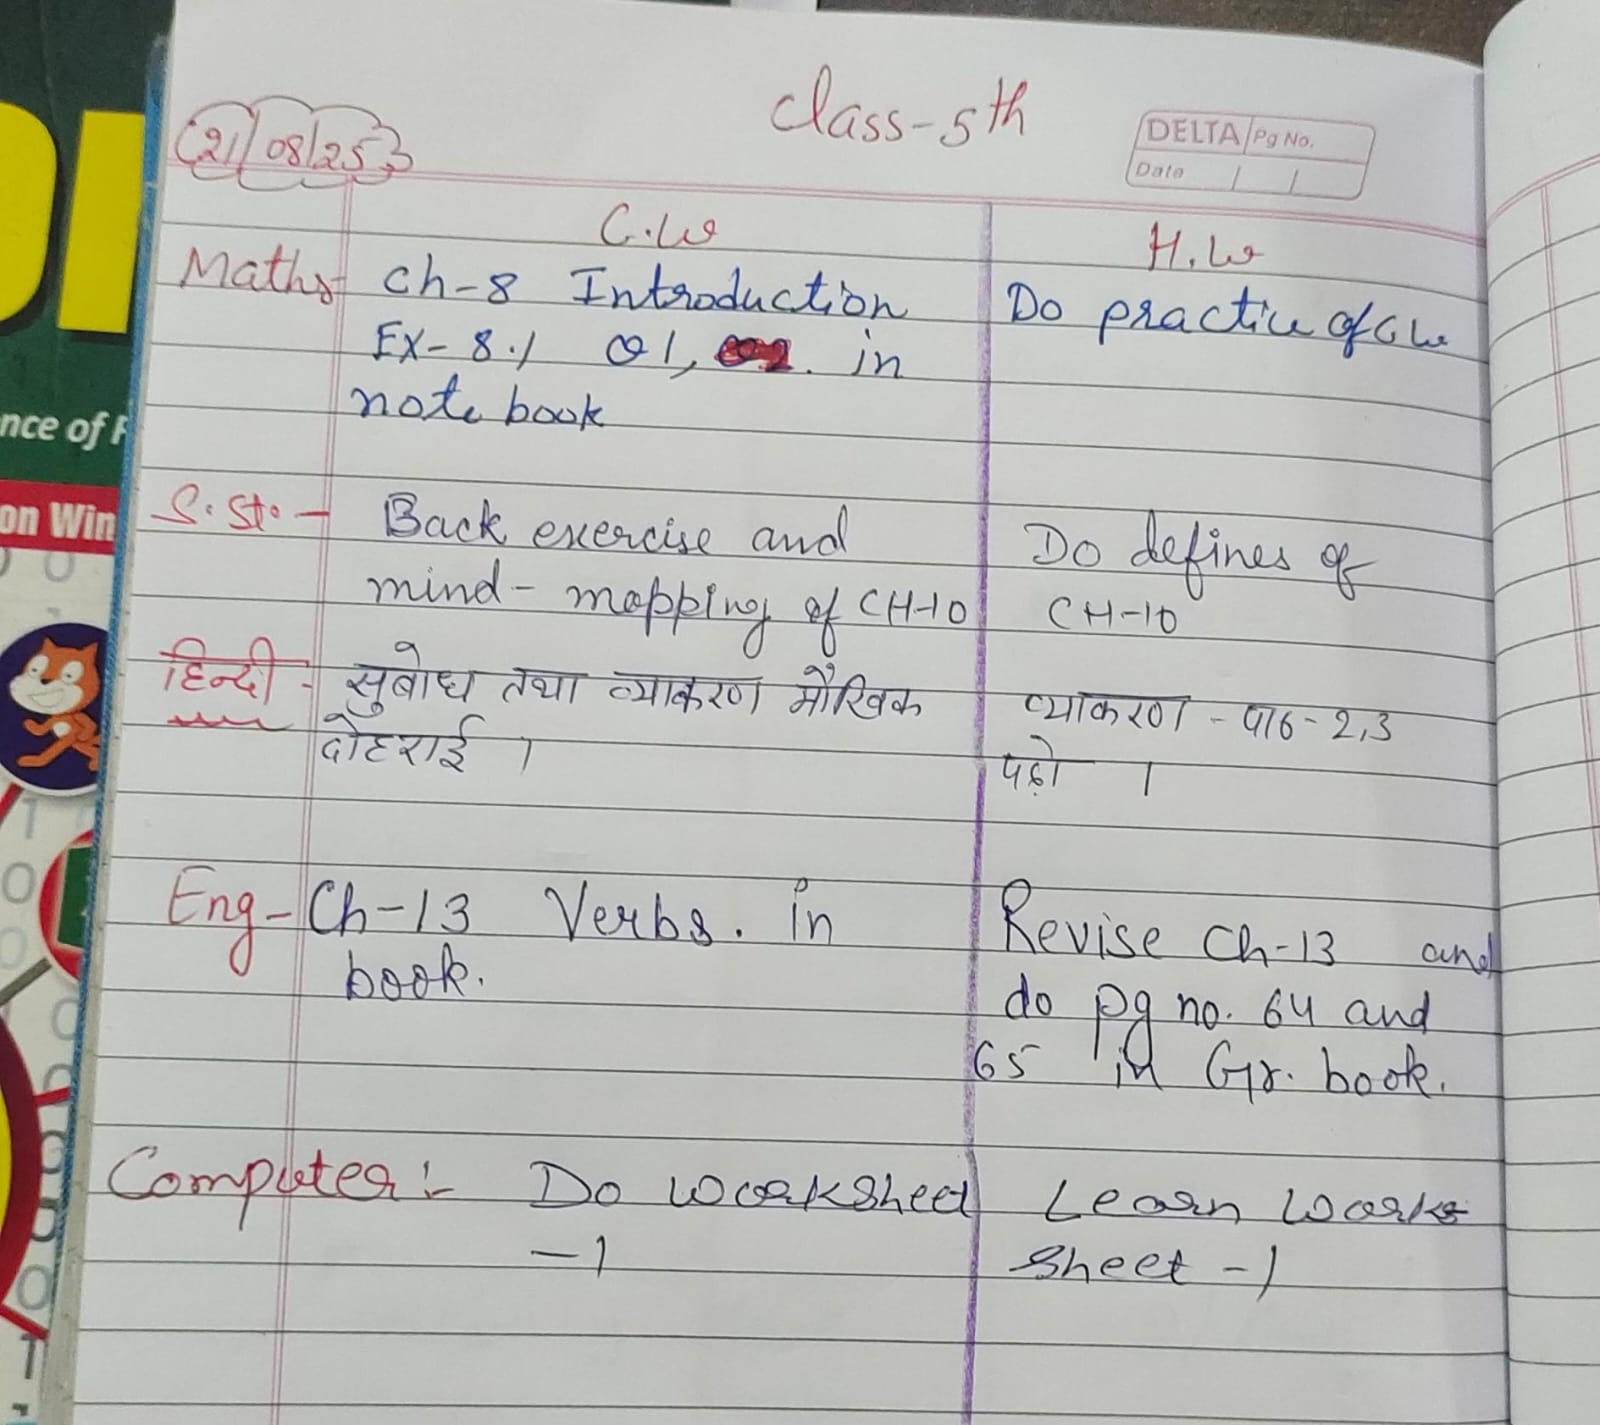 class-5th
21/08/25
DELTA Pg No.
Date / /
C.W H.W
Maths- Ch-8 Introduction Do practice of C.W
EX-8.1 Q1, in
note book
S.St.- Back exercise and Do defines of
mind-mapping of CH-10 CH-10
हिन्दी- सुबोध तथा व्याकरण मौखिक व्याकरण - पाठ-2,3
दोहराई । पढ़ो ।
Eng- Ch-13 Verbs. in Revise Ch-13 and
book. do pg no. 64 and
65 in Gr. book.
Computer:- Do worksheet Learn Work
-1 sheet -1
nce of F
on Win